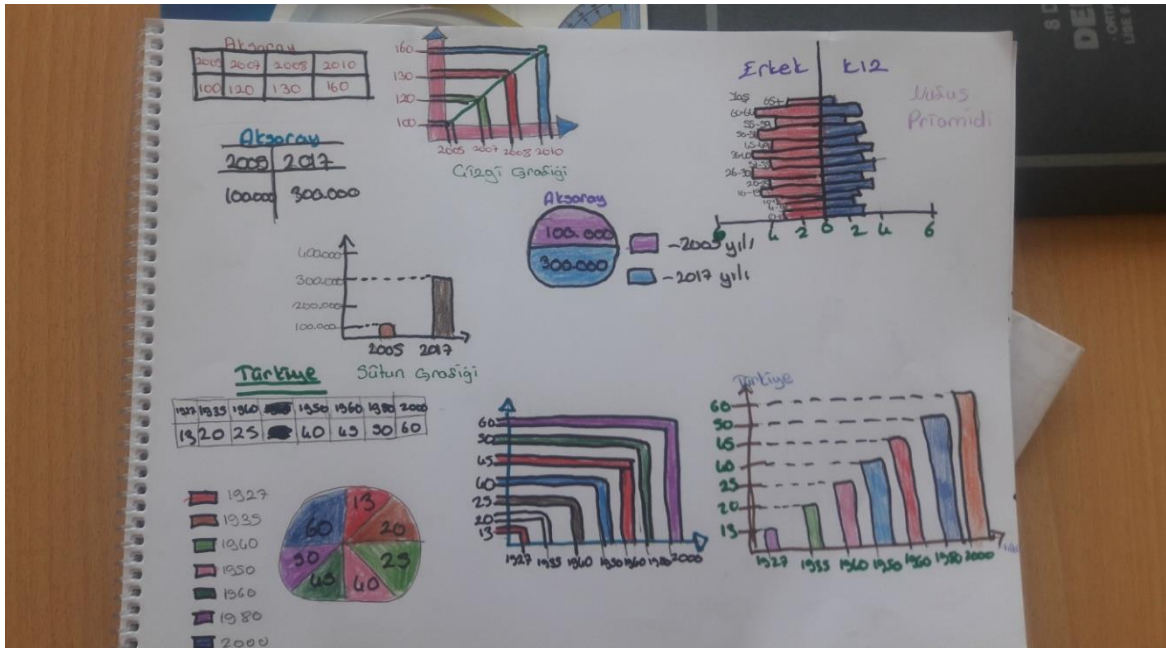 Aksaray
2005 2007 2008 2010
100 120 130 160
Aksaray
2005 2017
100.000 300.000
160
130
120
100
2005 2007 2008 2010
Çizgi Grafiği
Erkek KIZ
Nüfus
Priamidi
Yaş
65+
60-64
26-30
4 2 0 2 4 6
Aksaray
100.000
300.000
-2005 yılı
-2017 yılı
400.000
300.000
200.000
100.000
2005 2017
Sütun Grafiği
Türkiye
1927 1935 1940 1950 1960 1980 2000
13 20 25 40 45 50 60
1927
1935
1940
1950
1960
1980
2000
13
20
25
40
45
50
60
60
50
45
40
25
20
13
1927 1935 1940 1950 1960 1980 2000
Türkiye
60
50
45
40
25
20
13
1927 1935 1940 1950 1960 1980 2000
8 D
DE
ORT
LİSE